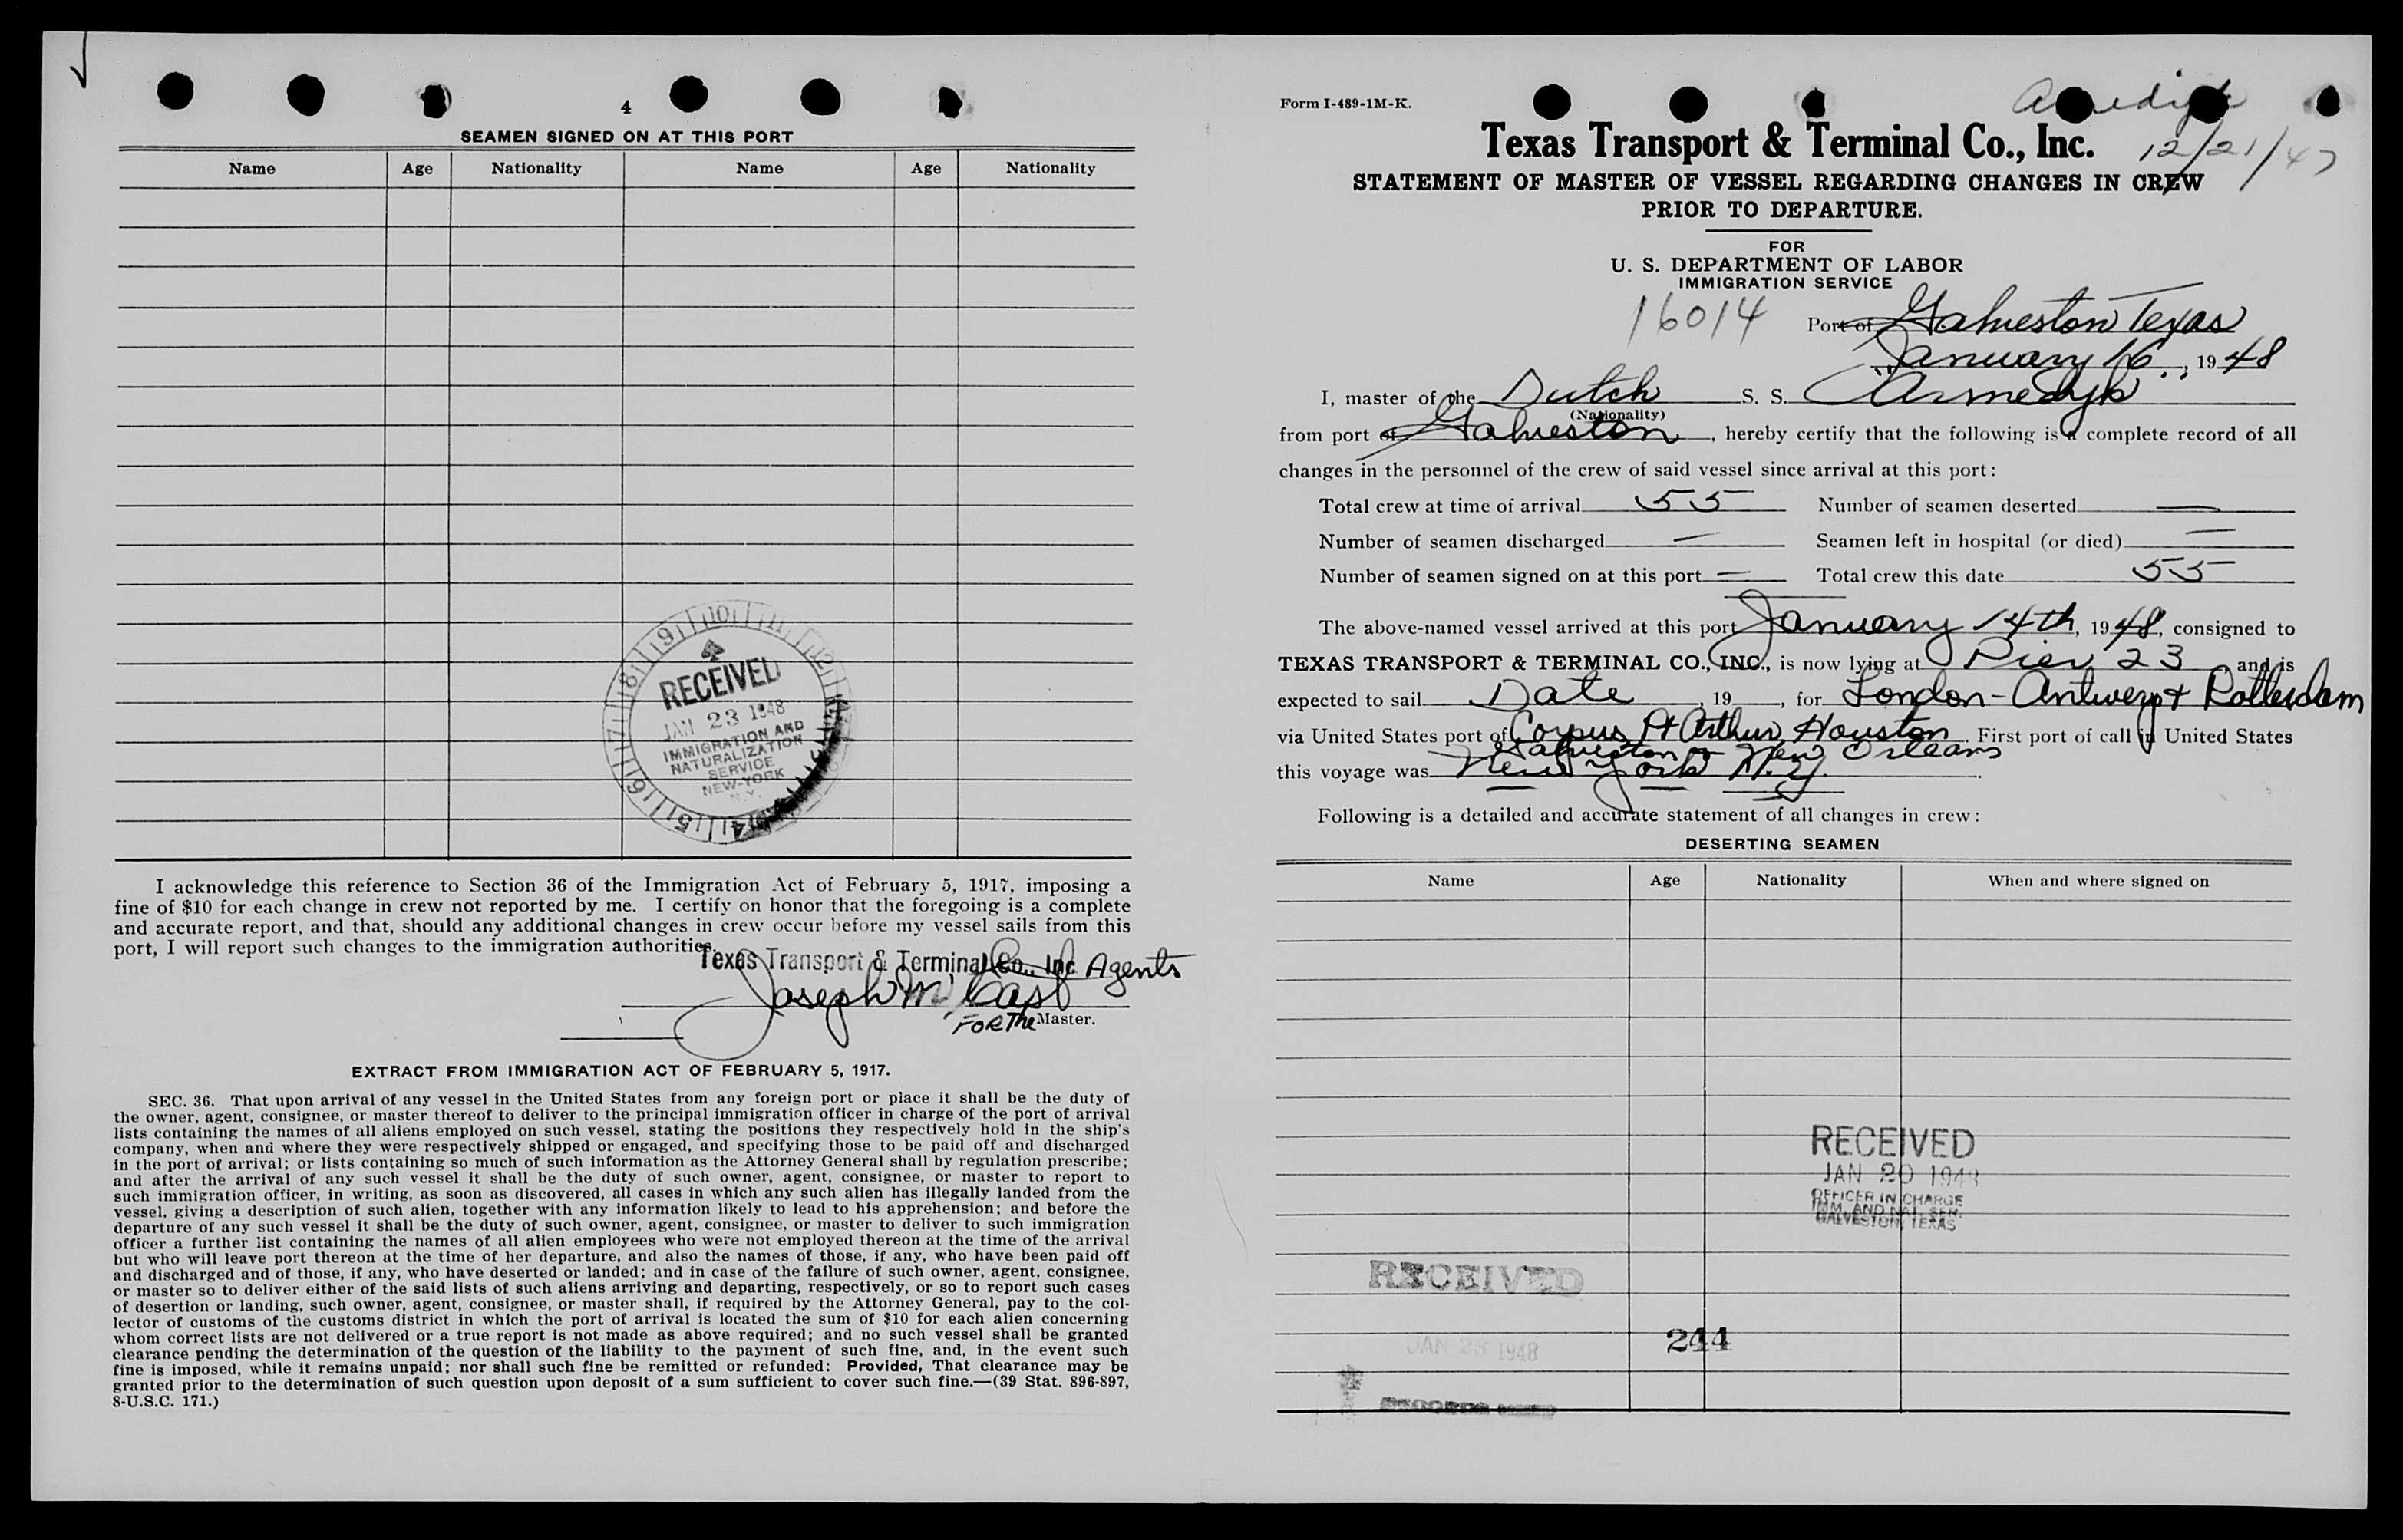 4
SEAMEN SIGNED ON AT THIS PORT
Name Age Nationality Name Age Nationality
RECEIVED
JAN 23 1948
IMMIGRATION AND
NATURALIZATION
SERVICE
NEW-YORK
N.Y.
I acknowledge this reference to Section 36 of the Immigration Act of February 5, 1917, imposing a
fine of $10 for each change in crew not reported by me. I certify on honor that the foregoing is a complete
and accurate report, and that, should any additional changes in crew occur before my vessel sails from this
port, I will report such changes to the immigration authorities.
Texas Transport & Terminal Co., Inc Agents
Joseph M
FOR The Master.
EXTRACT FROM IMMIGRATION ACT OF FEBRUARY 5, 1917.
SEC. 36. That upon arrival of any vessel in the United States from any foreign port or place it shall be the duty of
the owner, agent, consignee, or master thereof to deliver to the principal immigration officer in charge of the port of arrival
lists containing the names of all aliens employed on such vessel, stating the positions they respectively hold in the ship's
company, when and where they were respectively shipped or engaged, and specifying those to be paid off and discharged
in the port of arrival; or lists containing so much of such information as the Attorney General shall by regulation prescribe;
and after the arrival of any such vessel it shall be the duty of such owner, agent, consignee, or master to report to
such immigration officer, in writing, as soon as discovered, all cases in which any such alien has illegally landed from the
vessel, giving a description of such alien, together with any information likely to lead to his apprehension; and before the
departure of any such vessel it shall be the duty of such owner, agent, consignee, or master to deliver to such immigration
officer a further list containing the names of all alien employees who were not employed thereon at the time of the arrival
but who will leave port thereon at the time of her departure, and also the names of those, if any, who have been paid off
and discharged and of those, if any, who have deserted or landed; and in case of the failure of such owner, agent, consignee,
or master so to deliver either of the said lists of such aliens arriving and departing, respectively, or so to report such cases
of desertion or landing, such owner, agent, consignee, or master shall, if required by the Attorney General, pay to the col-
lector of customs of the customs district in which the port of arrival is located the sum of $10 for each alien concerning
whom correct lists are not delivered or a true report is not made as above required; and no such vessel shall be granted
clearance pending the determination of the question of the liability to the payment of such fine, and, in the event such
fine is imposed, while it remains unpaid; nor shall such fine be remitted or refunded: Provided, That clearance may be
granted prior to the determination of such question upon deposit of a sum sufficient to cover such fine.—(39 Stat. 896-897,
8-U.S.C. 171.)
Form I-489-1M-K.
Texas Transport & Terminal Co., Inc.
12/21/47
STATEMENT OF MASTER OF VESSEL REGARDING CHANGES IN CREW
PRIOR TO DEPARTURE.
FOR
U. S. DEPARTMENT OF LABOR
IMMIGRATION SERVICE
16014 Port of Galveston Texas
January 16, 1948
I, master of the Dutch S. S. Arnedyk
(Nationality)
from port of Galveston, hereby certify that the following is a complete record of all
changes in the personnel of the crew of said vessel since arrival at this port:
Total crew at time of arrival 55 Number of seamen deserted —
Number of seamen discharged — Seamen left in hospital (or died) —
Number of seamen signed on at this port — Total crew this date 55
The above-named vessel arrived at this port January 14th, 1948, consigned to
TEXAS TRANSPORT & TERMINAL CO., INC., is now lying at Pier 23 and is
expected to sail Date, 19 , for London - Antwerp & Rotterdam
via United States port of Corpus Pt Arthur Houston. First port of call in United States
Galveston & New Orleans
this voyage was New York N.Y.
Following is a detailed and accurate statement of all changes in crew:
DESERTING SEAMEN
Name Age Nationality When and where signed on
RECEIVED
JAN 20 1948
OFFICER IN CHARGE
IMM. AND NAT. SER.
GALVESTON, TEXAS
RECEIVED
244
JAN 23 1948